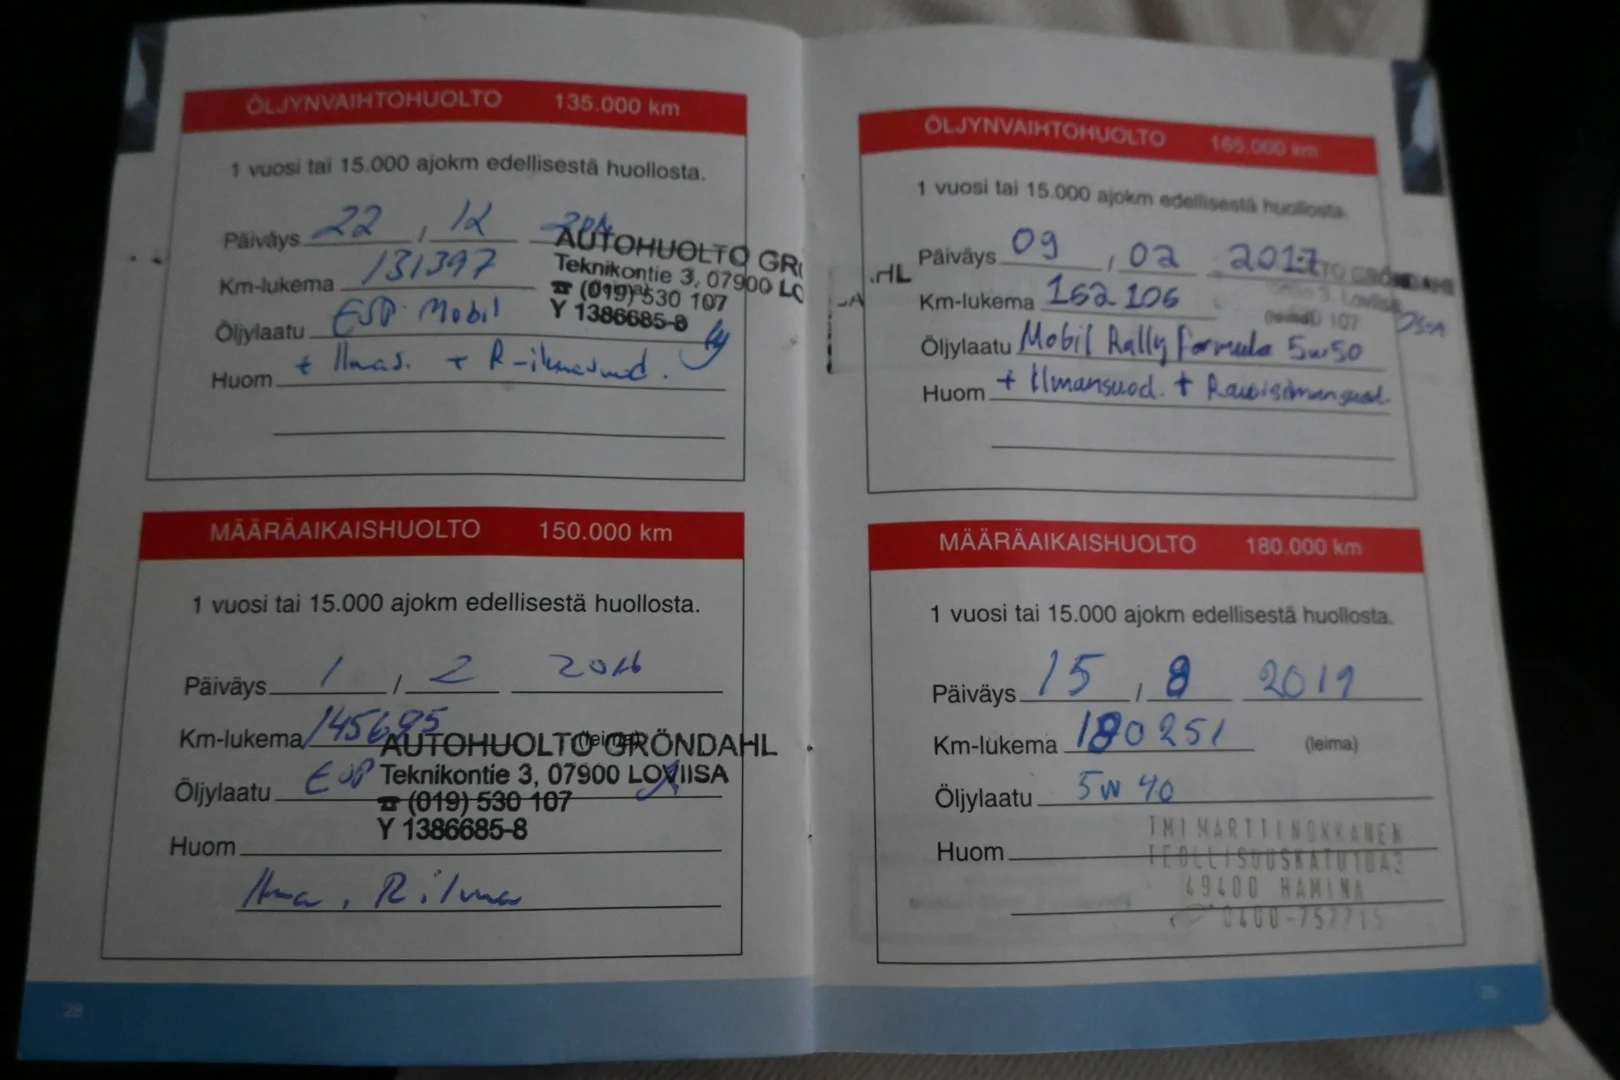 ÖLJYNVAIHTOHUOLTO 135.000 km
1 vuosi tai 15.000 ajokm edellisestä huollosta.
Päiväys 22 / 12
Km-lukema 131397
Öljylaatu ESP Mobil
Huom + Ilmas. + R-ilmasuod.
AUTOHUOLTO GRÖ
Teknikontie 3, 07900 LO
☎ (019) 530 107
Y 1386685-8
MÄÄRÄAIKAISHUOLTO 150.000 km
1 vuosi tai 15.000 ajokm edellisestä huollosta.
Päiväys 1 / 2 2016
Km-lukema 145695
(leima)
Öljylaatu ESP
Huom
AUTOHUOLTO GRÖNDAHL
Teknikontie 3, 07900 LOVIISA
☎ (019) 530 107
Y 1386685-8
28
ÖLJYNVAIHTOHUOLTO 165.000 km
1 vuosi tai 15.000 ajokm edellisestä huollosta.
Päiväys 09 / 02 2017
Km-lukema 162106
Öljylaatu Mobil Rally Formula 5w50
Huom + Ilmansuod. + Raitisilmansuod.
AHL
MÄÄRÄAIKAISHUOLTO 180.000 km
1 vuosi tai 15.000 ajokm edellisestä huollosta.
Päiväys 15 / 8 2019
Km-lukema 180251 (leima)
Öljylaatu 5W 40
Huom
TMI MARTTI NOKKANEN
TEOLLISUUSKATU 10A3
49400 HAMINA
0400-757715
29